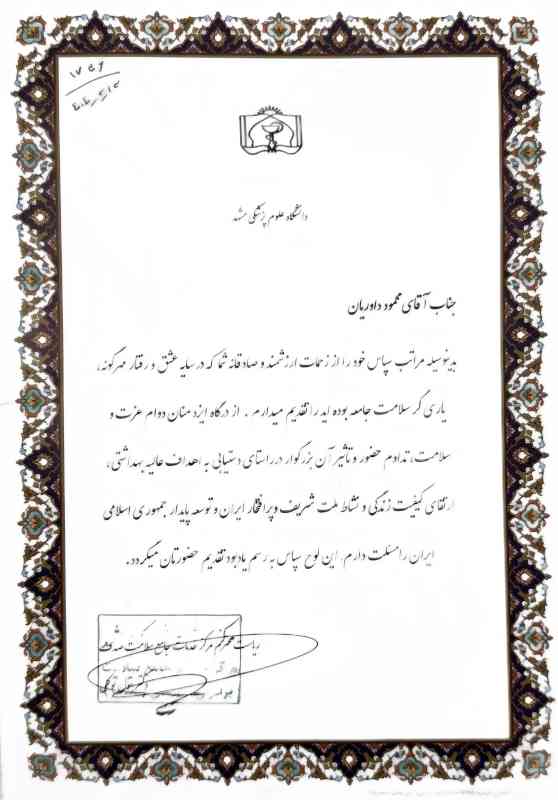 ۱۷۵۶
دانشگاه علوم پزشکی مشهد
جناب آقای محمود داوریان
بدینوسیله مراتب سپاس خود را از زحمات ارزشمند و صادقانه شما که در سایه عشق و رفتار مهرگونه،
یاری گر سلامت جامعه بوده اید را تقدیم میدارم. از درگاه ایزد منان دوام عزت و
سلامت، تداوم حضور و تاثیر آن بزرگوار در راستای دستیابی به اهداف عالیه بهداشتی،
ارتقای کیفیت زندگی و نشاط ملت شریف و پرافتخار ایران و توسعه پایدار جمهوری اسلامی
ایران را مسئلت دارم. این لوح سپاس به رسم یادبود تقدیم حضورتان میگردد.
ریاست محترم مرکز خدمات جامع سلامت
دکتر